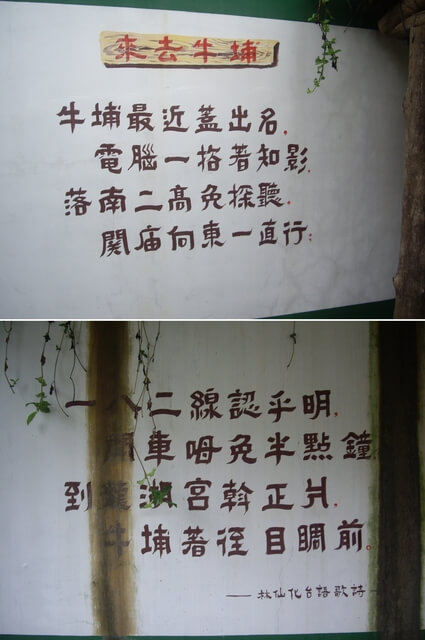 來去牛埔
牛埔最近蓋出名.
電腦一著知影.
落南二高免探聽.
關庙向東一直行;
一八二線認乎明.
開車呣免半點鐘.
到龍湖宮斡正爿.
牛埔著目睭前.
—— 林仙化台語歌詩 ——